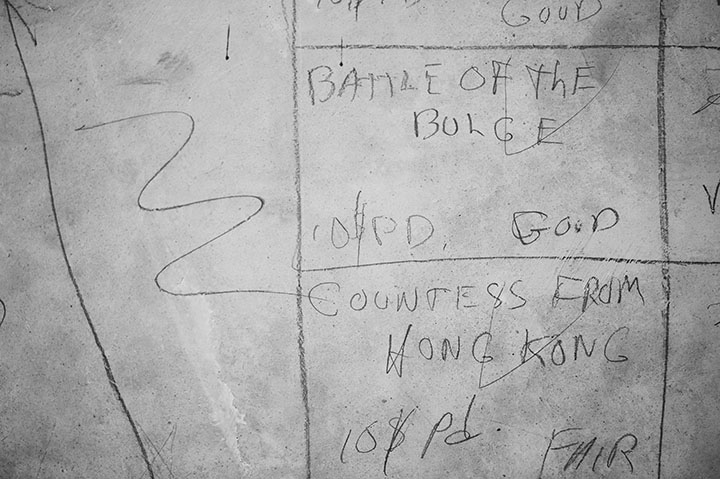 GOUD
BATTLE OF THE
BULGE
10¢ PD. GOOD
COUNTESS FROM
HONG KONG
10¢ Pd. FAIR